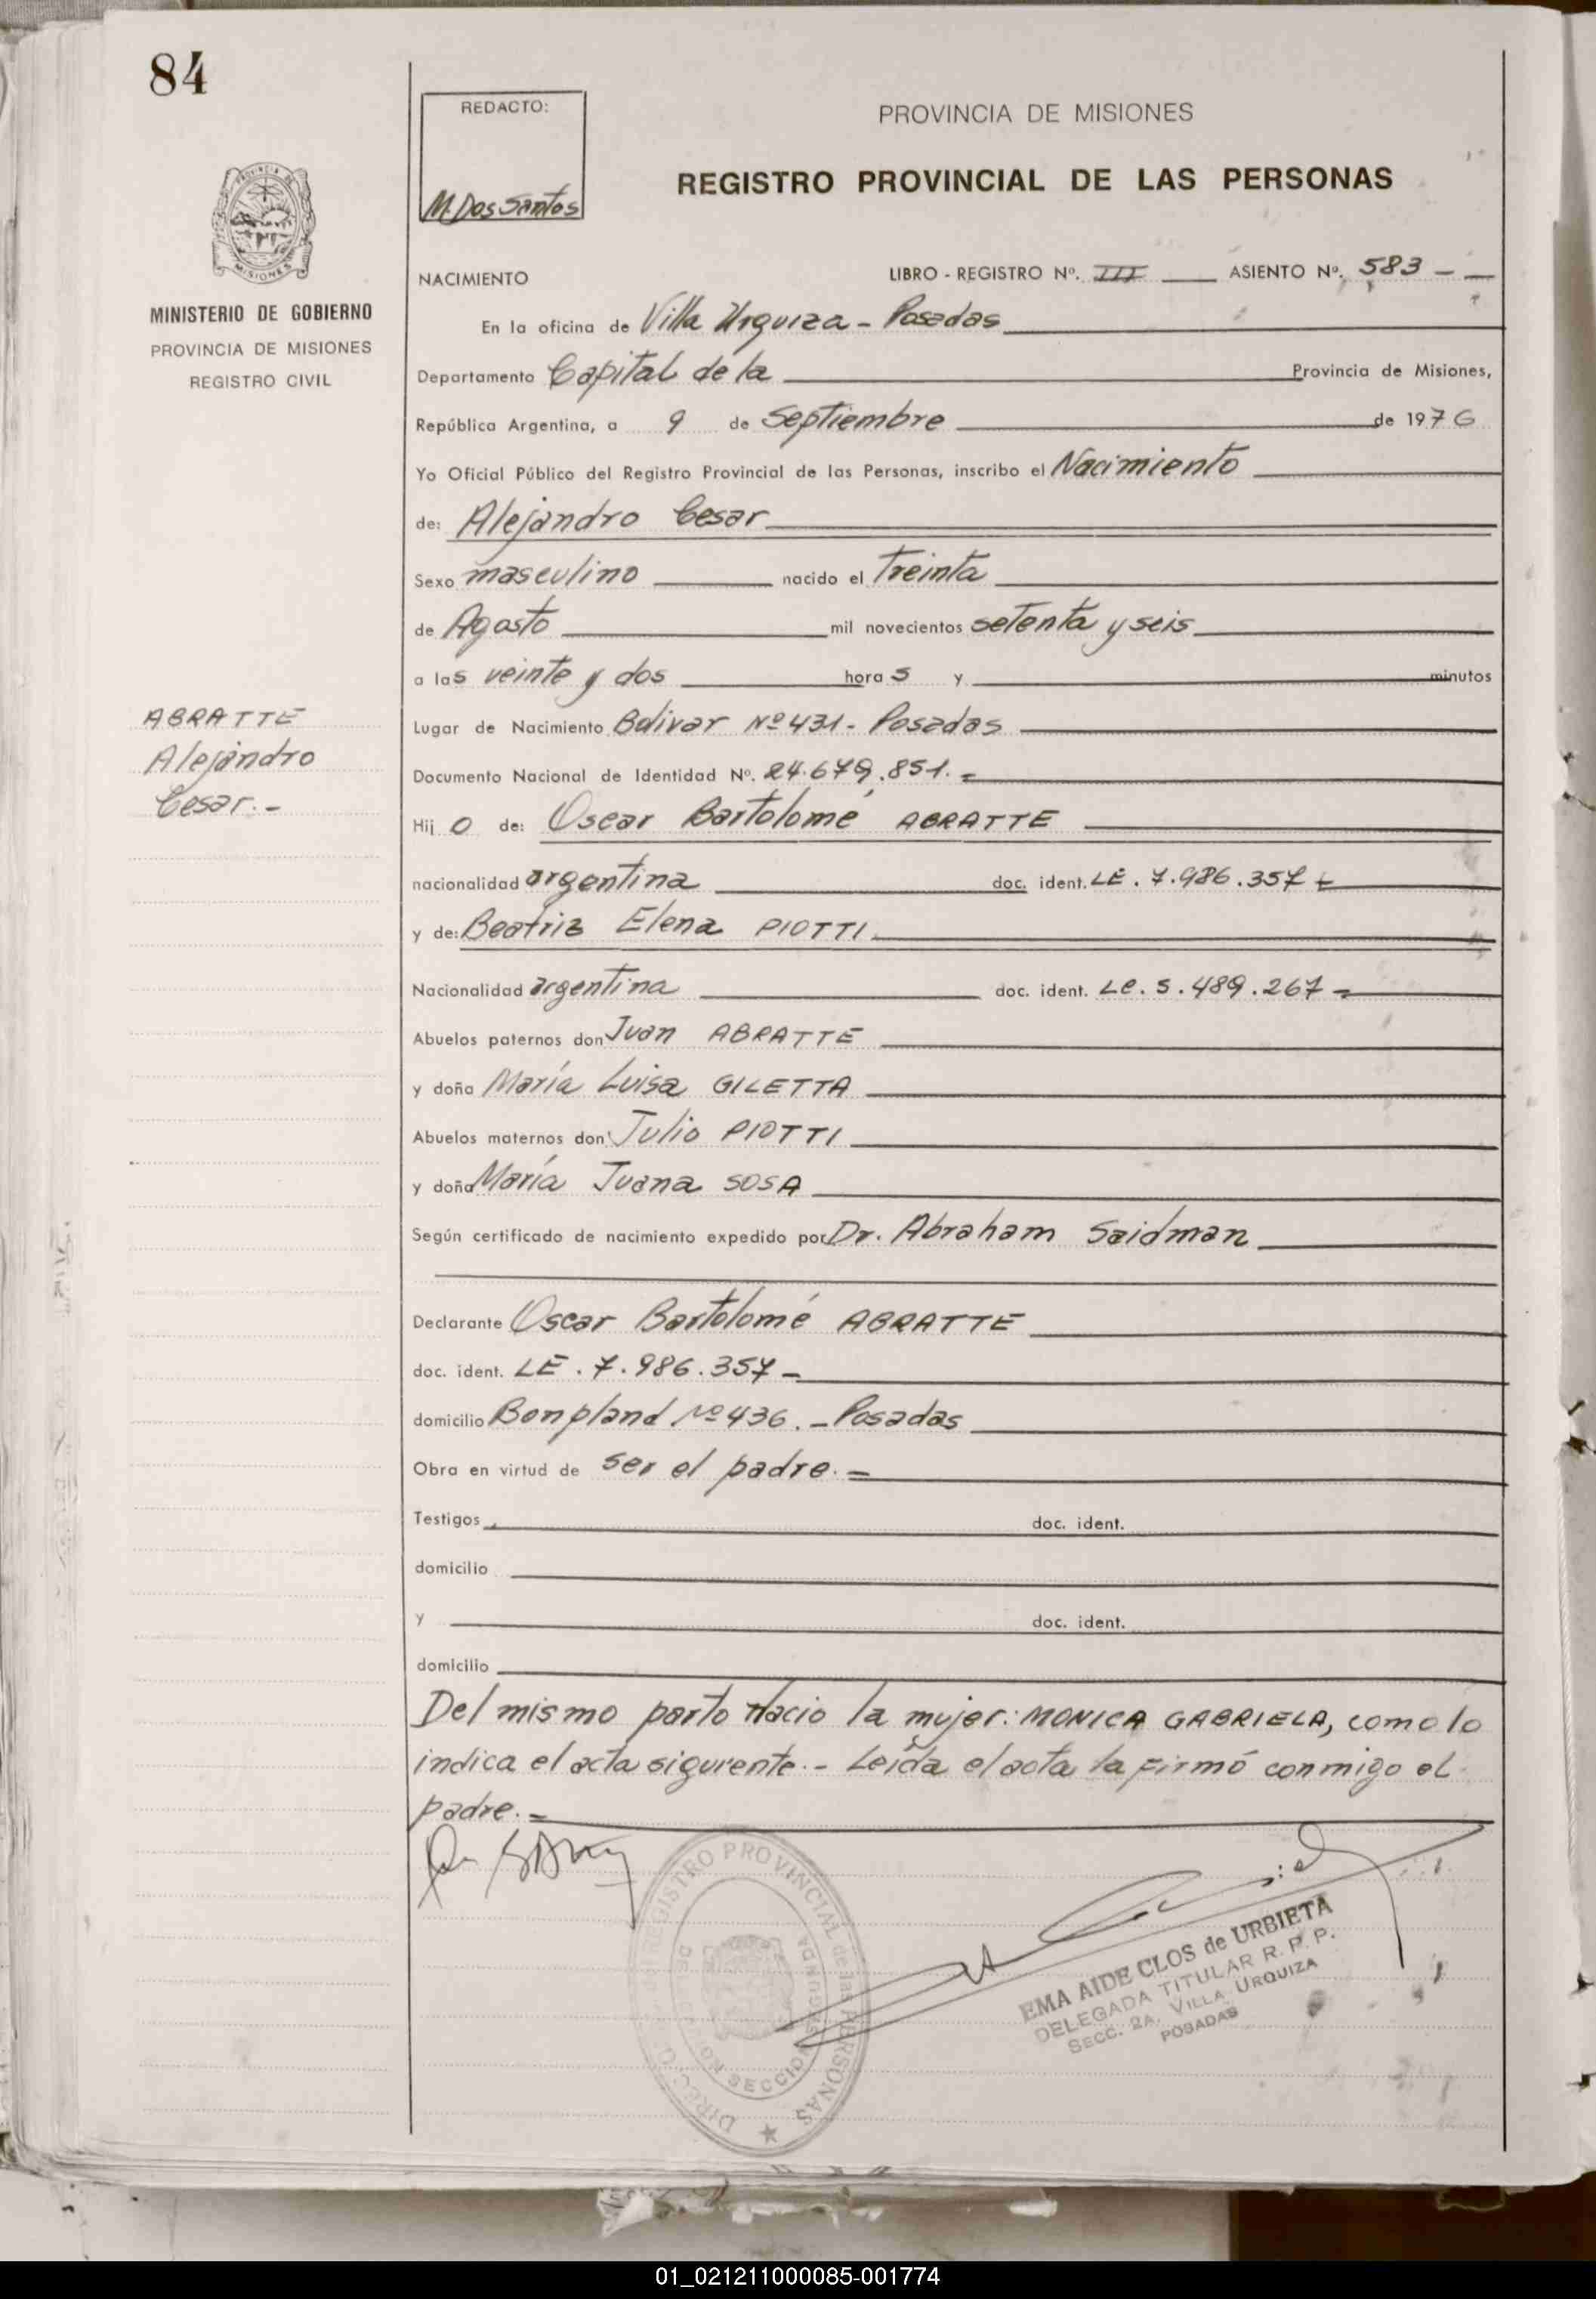 84
REDACTO:
M. Dos Santos
PROVINCIA DE MISIONES
REGISTRO PROVINCIAL DE LAS PERSONAS
PROVINCIA DE
MISIONES
MINISTERIO DE GOBIERNO
PROVINCIA DE MISIONES
REGISTRO CIVIL
NACIMIENTO LIBRO - REGISTRO Nº. III ASIENTO Nº. 583 -
En la oficina de Villa Urquiza - Posadas
Departamento Capital de la Provincia de Misiones,
República Argentina, a 9 de Septiembre de 1976
Yo Oficial Público del Registro Provincial de las Personas, inscribo el Nacimiento
de: Alejandro Cesar
Sexo masculino nacido el Treinta
de Agosto mil novecientos setenta y seis
a las veinte y dos horas y minutos
ABRATTE
Alejandro
Cesar.-
Lugar de Nacimiento Bolivar Nº 431 - Posadas
Documento Nacional de Identidad Nº. 24.679.851.=
Hijo de: Oscar Bartolomé ABRATTE
nacionalidad argentina doc. ident. LE. 7.986.357
y de: Beatriz Elena PIOTTI
Nacionalidad argentina doc. ident. LC. 5.489.267 =
Abuelos paternos don Juan ABRATTE
y doña María Luisa GILETTA
Abuelos maternos don Julio PIOTTI
y doña María Juana SOSA
Según certificado de nacimiento expedido por Dr. Abraham Saidman
Declarante Oscar Bartolomé ABRATTE
doc. ident. LE. 7.986.357 =
domicilio Bonpland Nº 436. - Posadas
Obra en virtud de ser el padre. =
Testigos doc. ident.
domicilio
y doc. ident.
domicilio
Del mismo parto nacio la mujer: MONICA GABRIELA, como lo
indica el acta siguiente. - Leída el acta la firmó conmigo el
padre. =
REGISTRO PROVINCIAL de las PERSONAS
SECCION SEGUNDA
EMA AIDE CLOS de URBIETA
DELEGADA TITULAR R. P. P.
SECC. 2A. VILLA URQUIZA
POSADAS
01_021211000085-001774